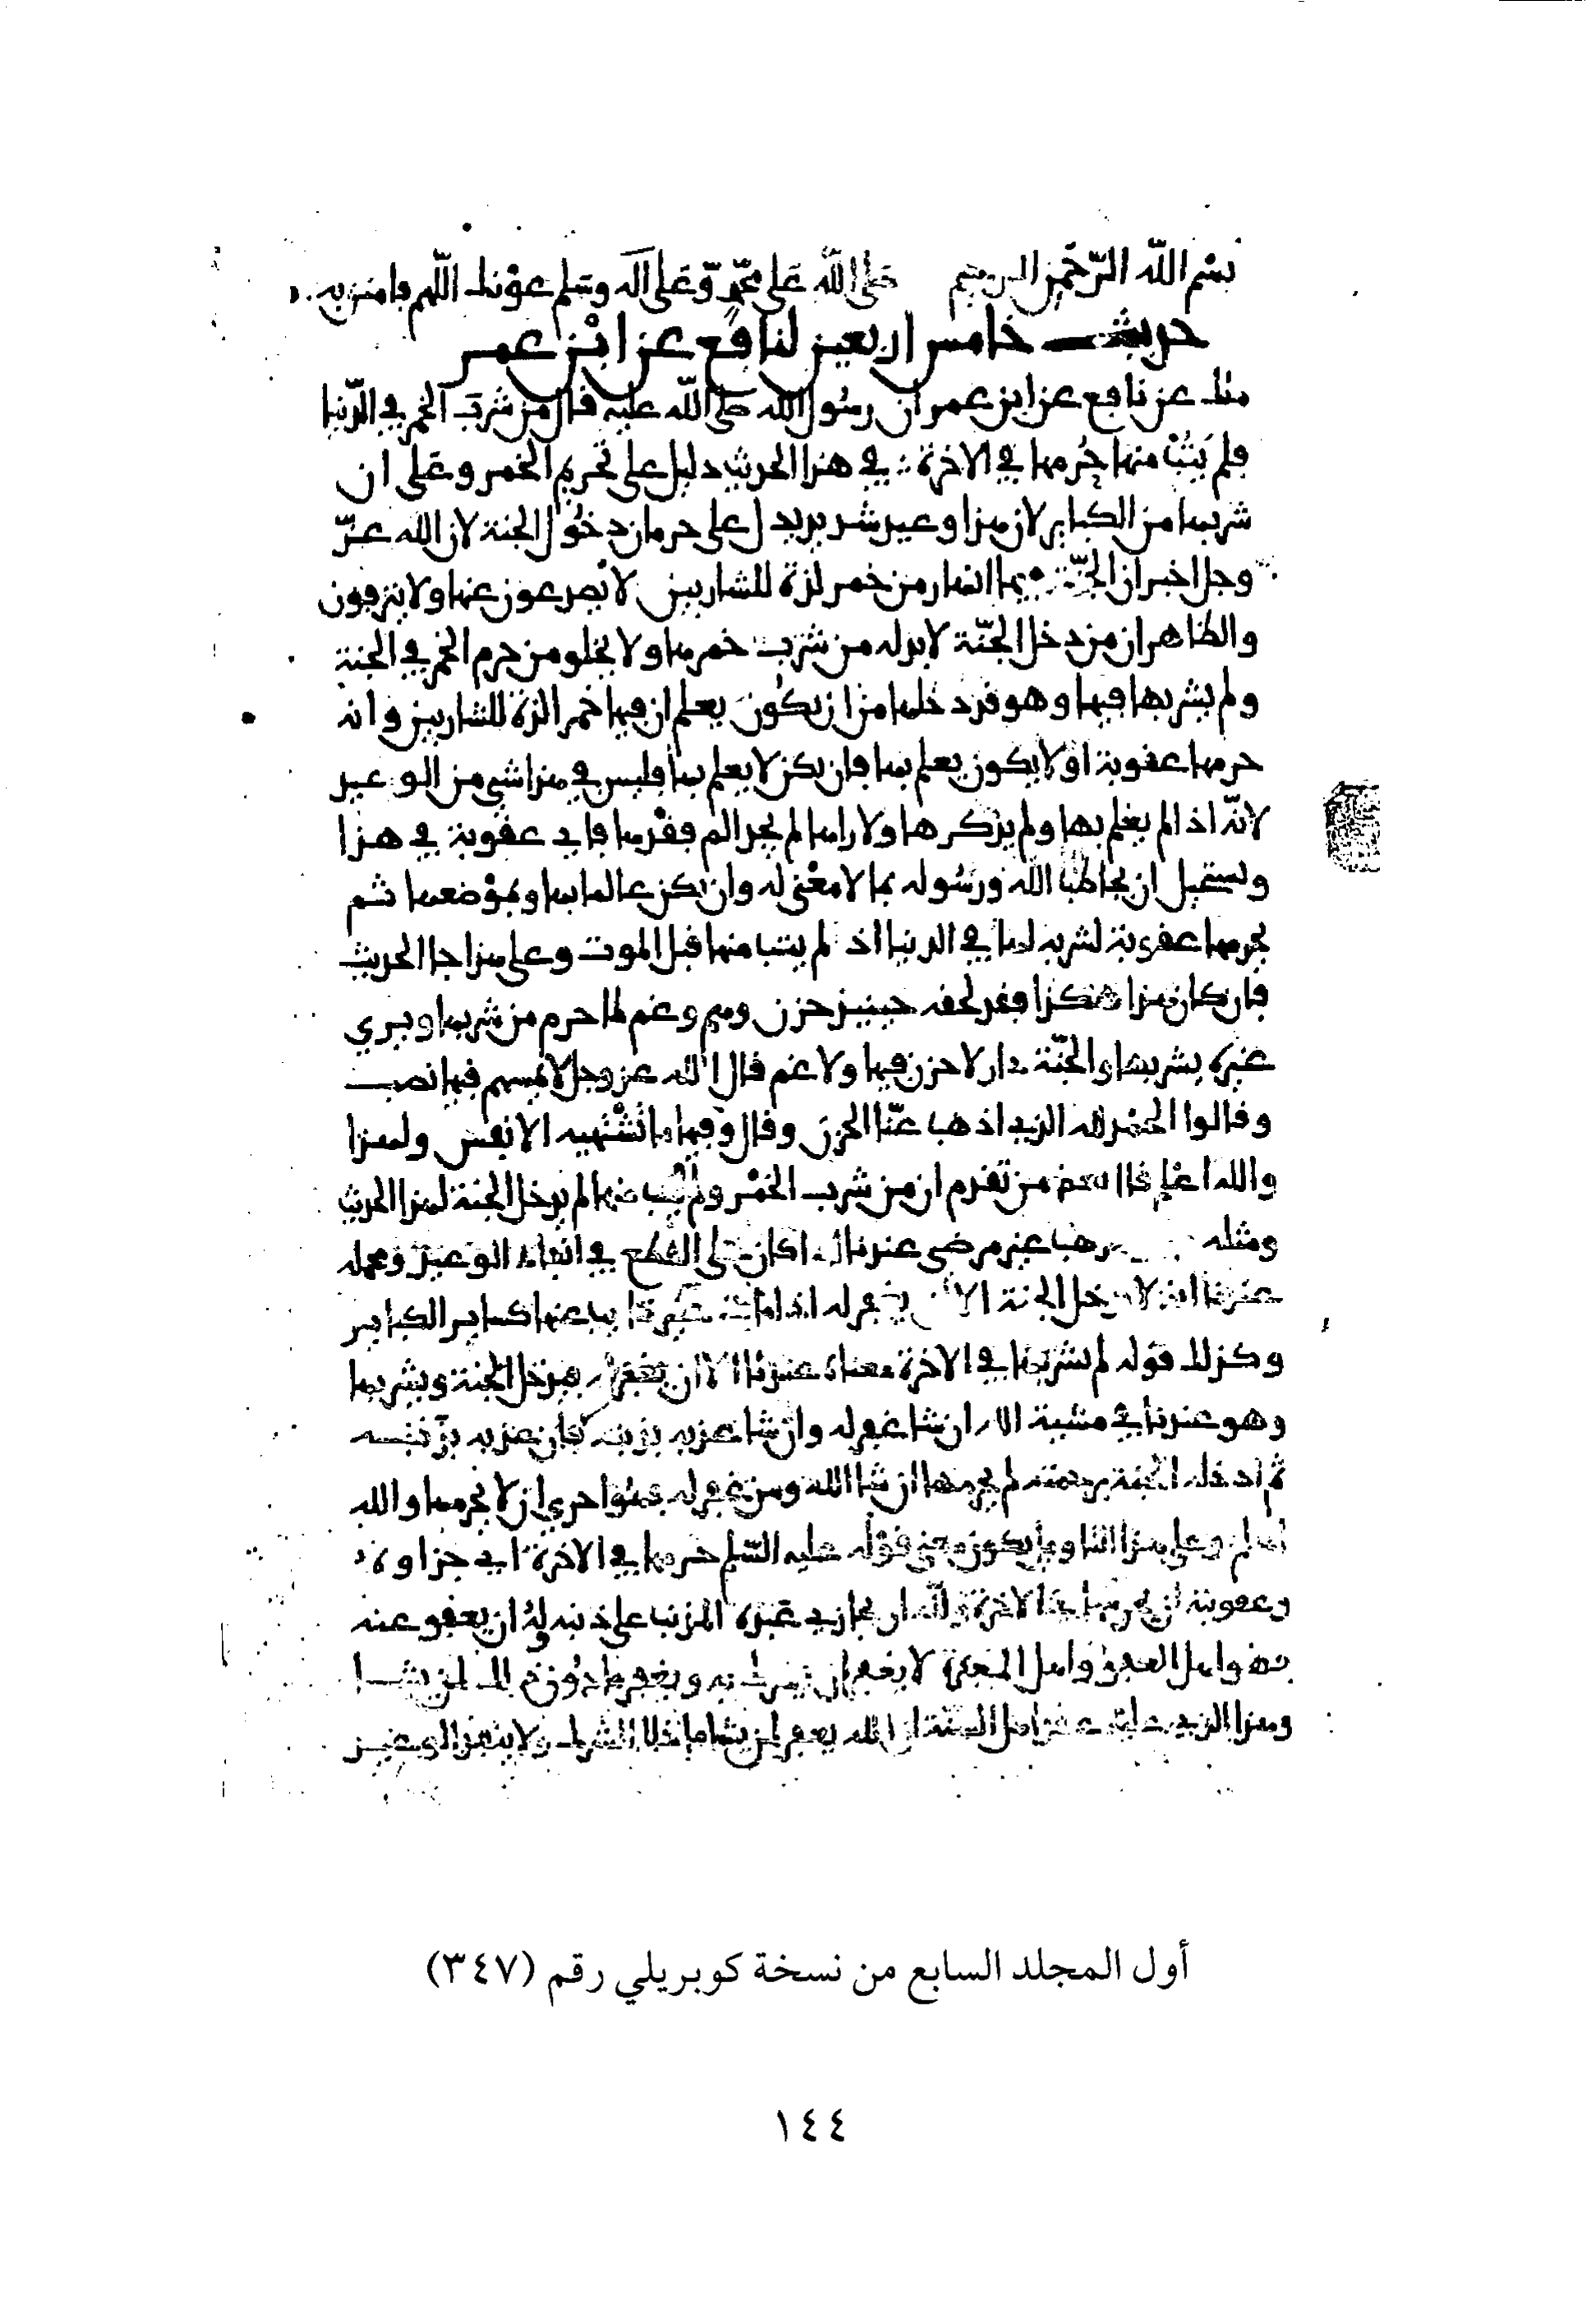 بسم الله الرحمن الرحيم صلى الله على محمد وعلى اله وسلم عونك اللهم
حديث خامس اربعين لنافع عن ابن عمر
ملك عن نافع عن ابن عمر ان رسول الله صلى الله عليه قال من شرب الخمر في الدنيا
فلم يتب منها حرمها في الاخرة في هذا الحديث دليل على تحريم الخمر وعلى ان
شربها من الكباير لان هذا وعيد شديد يدل على حرمان دخول الجنة لان الله عز
وجل اخبر ان الجنة فيها انهار من خمر لذة للشاربين لا يصدعون عنها ولا ينزفون
والظاهر ان من دخل الجنة لابد له من شرب خمرها ولا يخلو من حرم الخمر في الجنة
ولم يشربها فيها وهو قد دخلها من ان يكون يعلم ان فيها خمرا لذة للشاربين وانه
حرمها عقوبة او لا يكون يعلم بها فان يكن لا يعلم بها فليس في هذا شي من الوعيد
لانه اذا لم يعلم بها ولم يذكرها ولا راها لم يجد الم فقدها فاي عقوبة في هذا
ويستحيل ان يخاطب الله ورسوله بما لا معنى له وان يكن عالما بها وبموضعها ثم
يحرمها عقوبة لشربه لها في الدنيا اذ لم يتب منها قبل الموت وعلى هذا جا الحديث
فان كان هذا هكذا فقد لحقه حينيذ حزن وهم وغم لما حرم من شربها ويرى
غيره يشربها والجنة دار لا حزن فيها ولا غم قال الله عز وجل لا يمسهم فيها نصب
وقالوا الحمد لله الذي اذهب عنا الحزن وقال وفيها ما تشتهيه الانفس ولهذا
والله اعلم قال بعض من تقدم ان من شرب الخمر ولم يتب منها لم يدخل الجنة لهذا الحديث
ومثله وهو مذهب غير مرضي عندنا اذا كان على القطع في انفاذ الوعيد ومحمله
عندنا انه لا يدخل الجنة الا ان يغفر له اذا مات غير تايب عنها كساير الكباير
وكذلك قوله لم يشربها في الاخرة معناه عندنا الا ان يغفر له فيدخل الجنة ويشربها
وهو عندنا في مشية الله ان شا غفر له وان شا عذبه بذنبه فان عذبه بذنبه
ثم ادخله الجنة برحمته لم يحرمها ان شا الله ومن غفر له فهو احرى ان لا يحرمها والله
اعلم وعلى هذا التاويل يكون معنى قوله عليه السلم حرمها في الاخرة اي جزاوه
وعقوبته ان يحرمها في الاخرة ولله ان يجازي عبده المذنب على ذنبه وله ان يعفو عنه
فهو اهل العفو واهل المغفرة لا يغفر ان يشرك به ويغفر ما دون ذلك لمن يشا
وهذا الذي عليه عقد اهل السنة ان الله يغفر لمن يشا ما خلا الشرك ولا ينفذ الوعيد
أول المجلد السابع من نسخة كوبريلي رقم (٣٤٧)
١٤٤